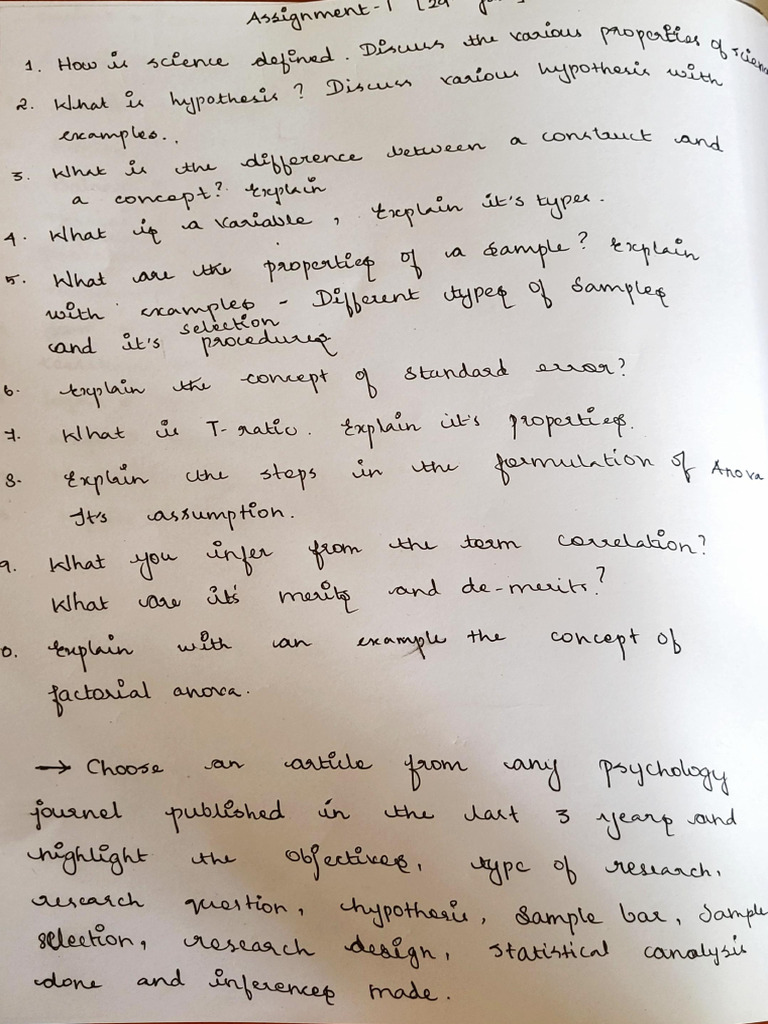 Assignment-1 [29
1. How is science defined. Discuss the various properties of scien
2. What is hypothesis? Discuss various hypothesis with
examples..
3. What is the difference between a construct and
a concept? Explain
4. What is a variable, Explain it's types.
5. What are the properties of a sample? Explain
with examples - Different types of samples
selection
and it's procedures
6. Explain the concept of standard error?
7. What is T-ratio. Explain it's properties.
8. Explain the steps in the formulation of Anova
It's assumption.
9. What you infer from the term correlation?
What are it's merits and de-merits?
0. Explain with an example the concept of
factorial anova.
→ Choose an article from any psychology
journel published in the last 3 years and
highlight the objectives, type of research,
research question, hypothesis, Sample bar, Sample
selection, research design, statistical analysis
done and inferences made.